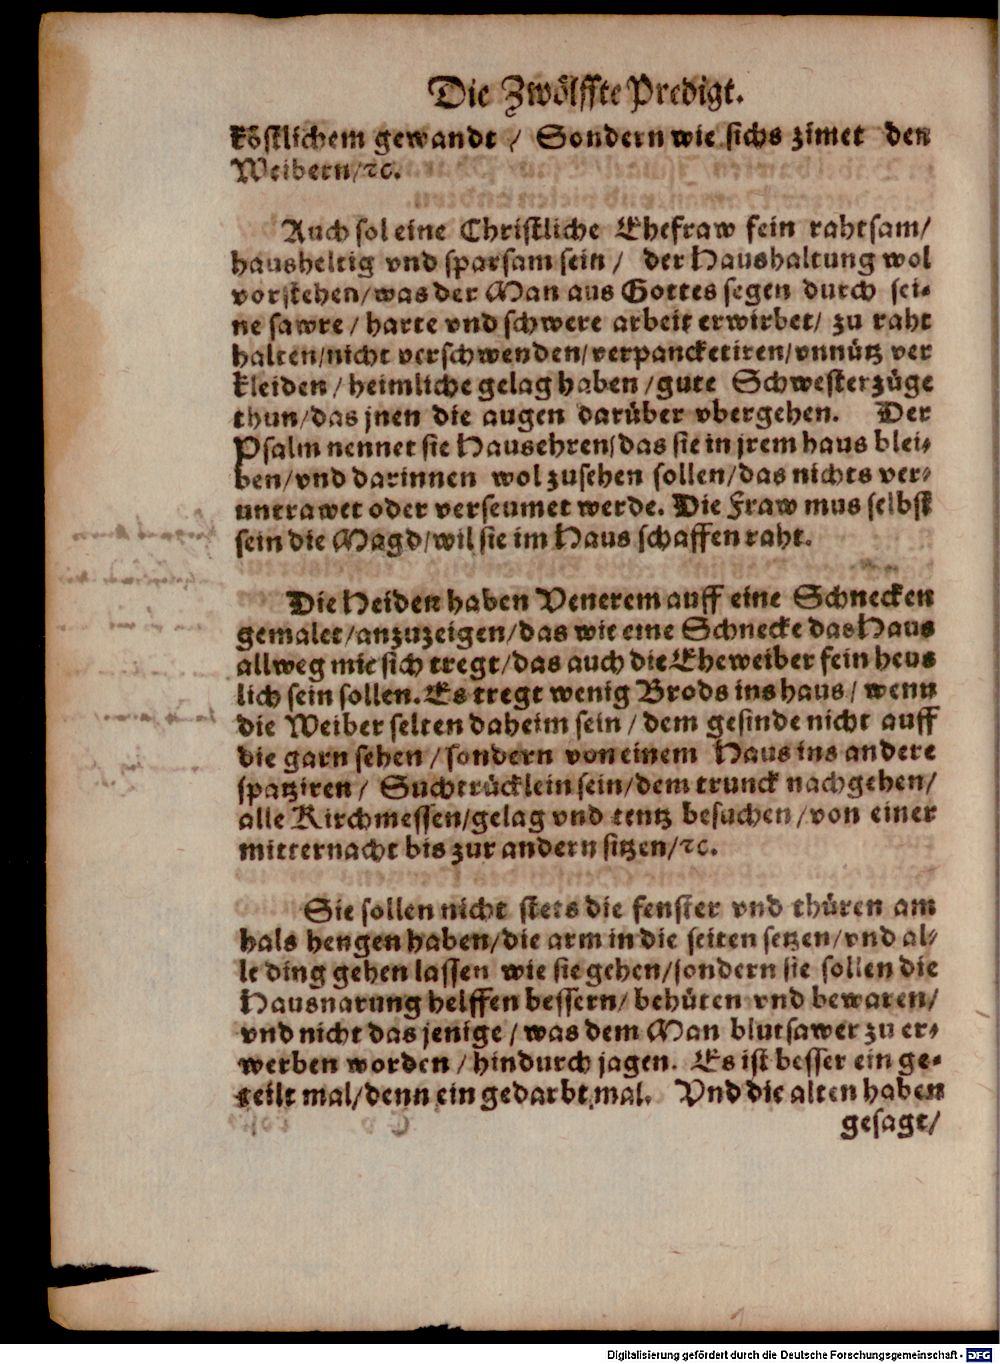 Die Zwölffte Predigt.
köstlichem gewandt / Sondern wie sichs zimet den
Weibern/ꝛc.
Auch sol eine Christliche Ehefraw fein rahtsam/
hausheltig vnd sparsam sein / der Haushaltung wol
vorstehen/was der Man aus Gottes segen durch sei-
ne sawre / harte vnd schwere arbeit erwirbet/ zu raht
halten/nicht verschwenden/verpancketiren/vnnütz ver
kleiden / heimliche gelag haben /gute Schwesterzüge
thun/das jnen die augen darüber vbergehen. Der
Psalm nennet sie Hausehren/das sie in jrem haus blei-
ben/vnd darinnen wol zusehen sollen/das nichts ver-
untrawet oder verseumet werde. Die Fraw mus selbst
sein die Magd/wil sie im Haus schaffen raht.
Die Heiden haben Venerem auff eine Schnecken
gemalet/anzuzeigen/das wie eine Schnecke das Haus
allweg mit sich tregt/das auch die Eheweiber fein heus
lich sein sollen. Es tregt wenig Brods ins haus / wenn
die Weiber selten daheim sein / dem gesinde nicht auff
die garn sehen /sondern von einem Haus ins andere
spatziren / Suchtrücklein sein/dem trunck nachgehen/
alle Kirchmessen/gelag vnd tentz besuchen /von einer
mitternacht bis zur andern sitzen/ꝛc.
Sie sollen nicht stets die fenster vnd thüren am
hals hengen haben/die arm in die seiten setzen/vnd al-
le ding gehen lassen wie sie gehen/sondern sie sollen die
Hausnarung helffen bessern/ behüten vnd bewaren/
vnd nicht das jenige / was dem Man blutsawer zu er-
werben worden / hindurch jagen. Es ist besser ein ge-
teilt mal/denn ein gedarbt mal. Vnd die alten haben
gesagt/
Digitalisierung gefördert durch die Deutsche Forschungsgemeinschaft - DFG